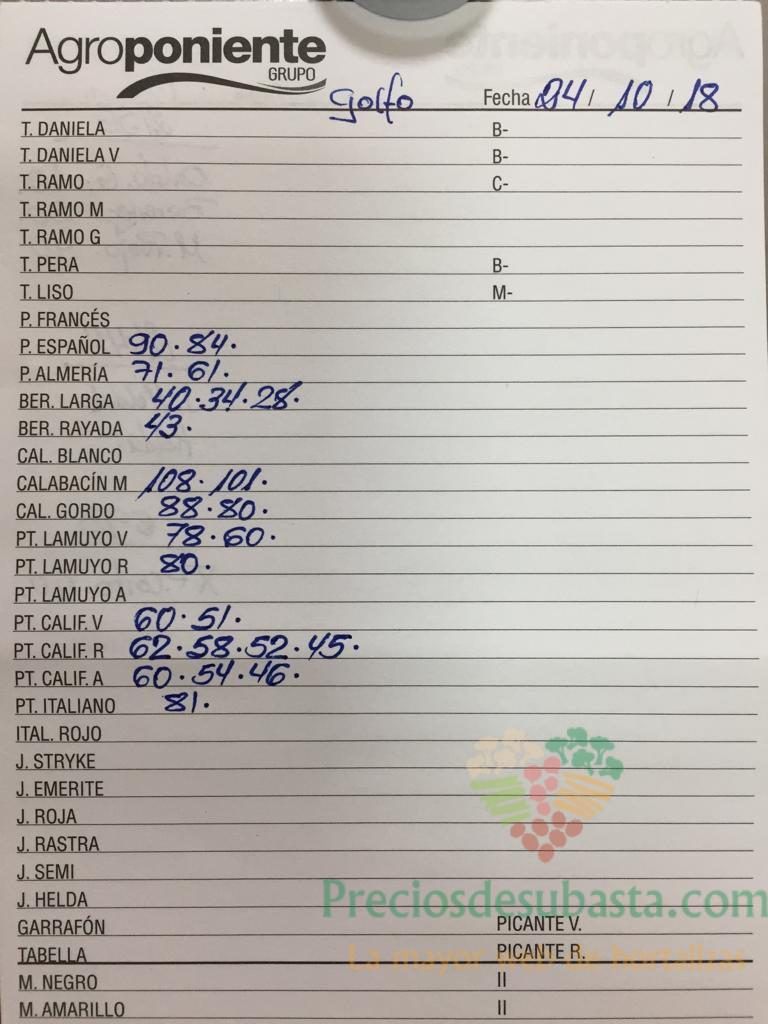 Agroponiente
GRUPO
Golfo Fecha 24 / 10 / 18
T. DANIELA B-
T. DANIELA V B-
T. RAMO C-
T. RAMO M
T. RAMO G
T. PERA B-
T. LISO M-
P. FRANCÉS
P. ESPAÑOL 90. 84.
P. ALMERÍA 71. 61.
BER. LARGA 40. 34. 28.
BER. RAYADA 43.
CAL. BLANCO
CALABACÍN M 108. 101.
CAL. GORDO 88. 80.
PT. LAMUYO V 78. 60.
PT. LAMUYO R 80.
PT. LAMUYO A
PT. CALIF. V 60. 51.
PT. CALIF. R 62. 58. 52. 45.
PT. CALIF. A 60. 54. 46.
PT. ITALIANO 81.
ITAL. ROJO
J. STRYKE
J. EMERITE
J. ROJA
J. RASTRA
J. SEMI
J. HELDA
Preciosdesubasta.com
GARRAFÓN PICANTE V.
TABELLA PICANTE R.
La mayor web de hortalizas
M. NEGRO II
M. AMARILLO II